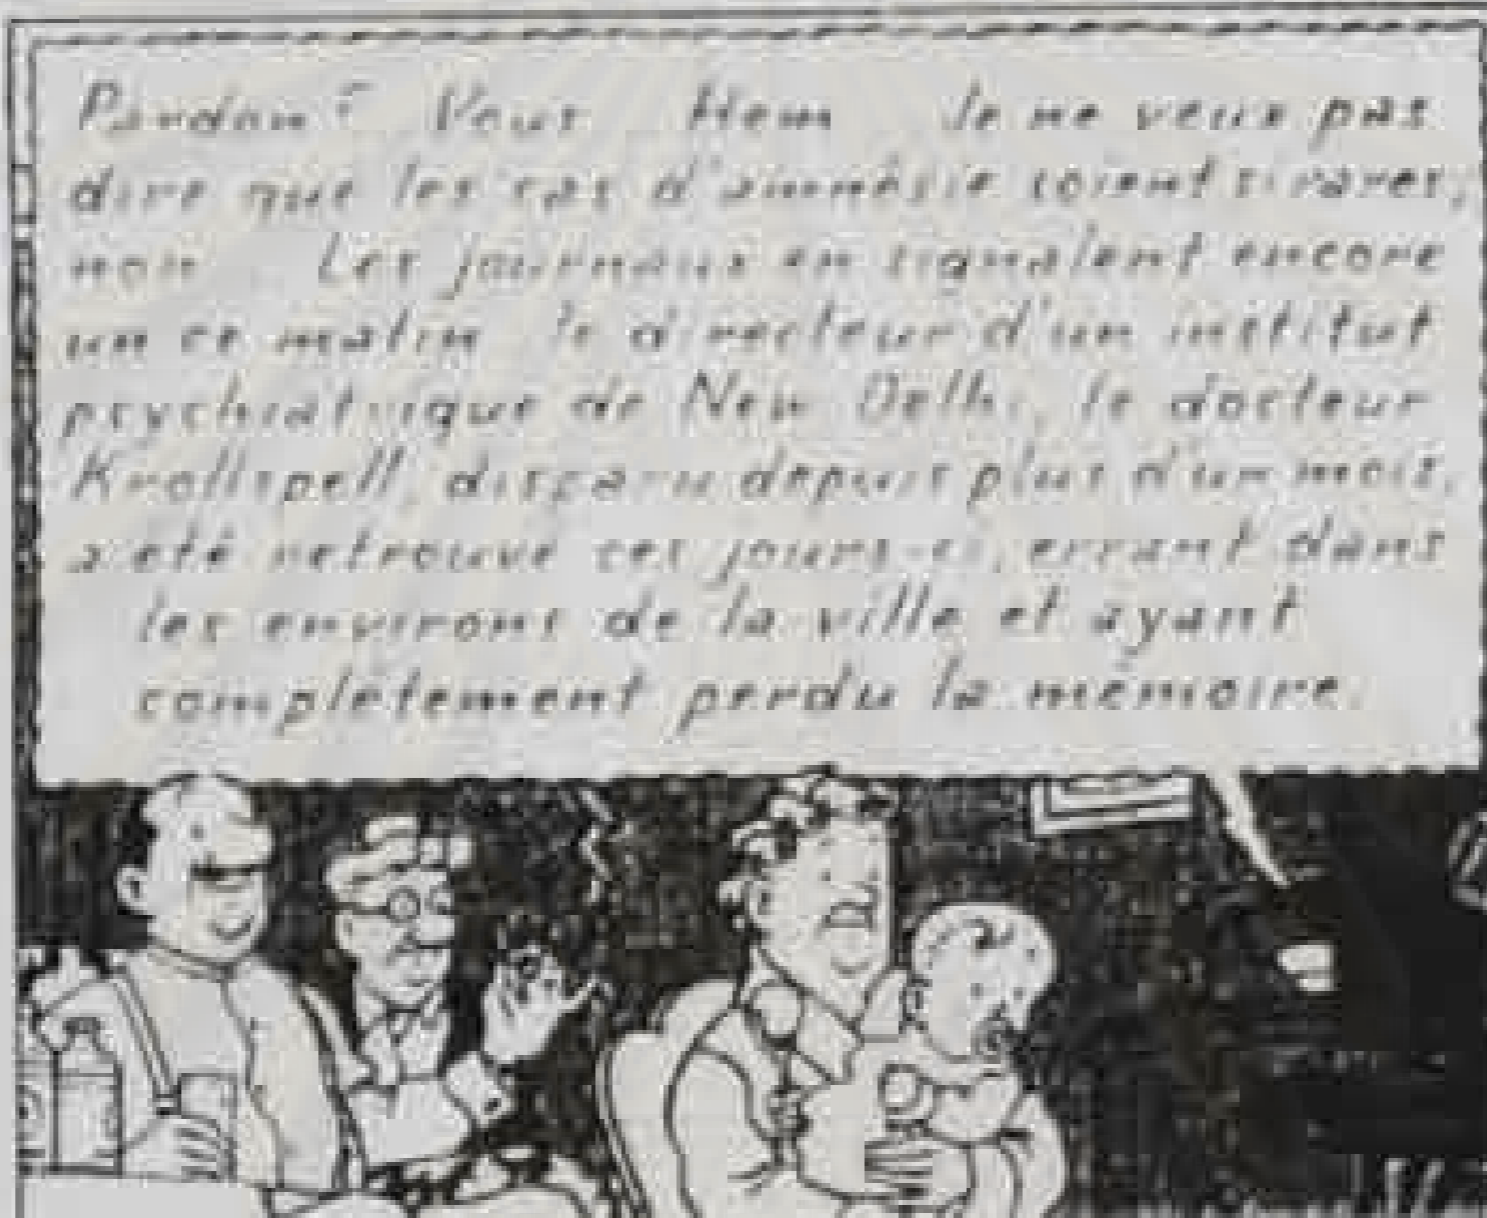 Pardon ? Vous Hem Je ne veux pas
dire que les cas d'amnésie soient si rares,
non . Les journaux en signalent encore
un ce matin le directeur d'un institut
psychiatrique de New Delhi, le docteur
Krollspell, disparu depuis plus d'un mois,
a été retrouvé ces jours-ci, errant dans
les environs de la ville et ayant
complètement perdu la mémoire.